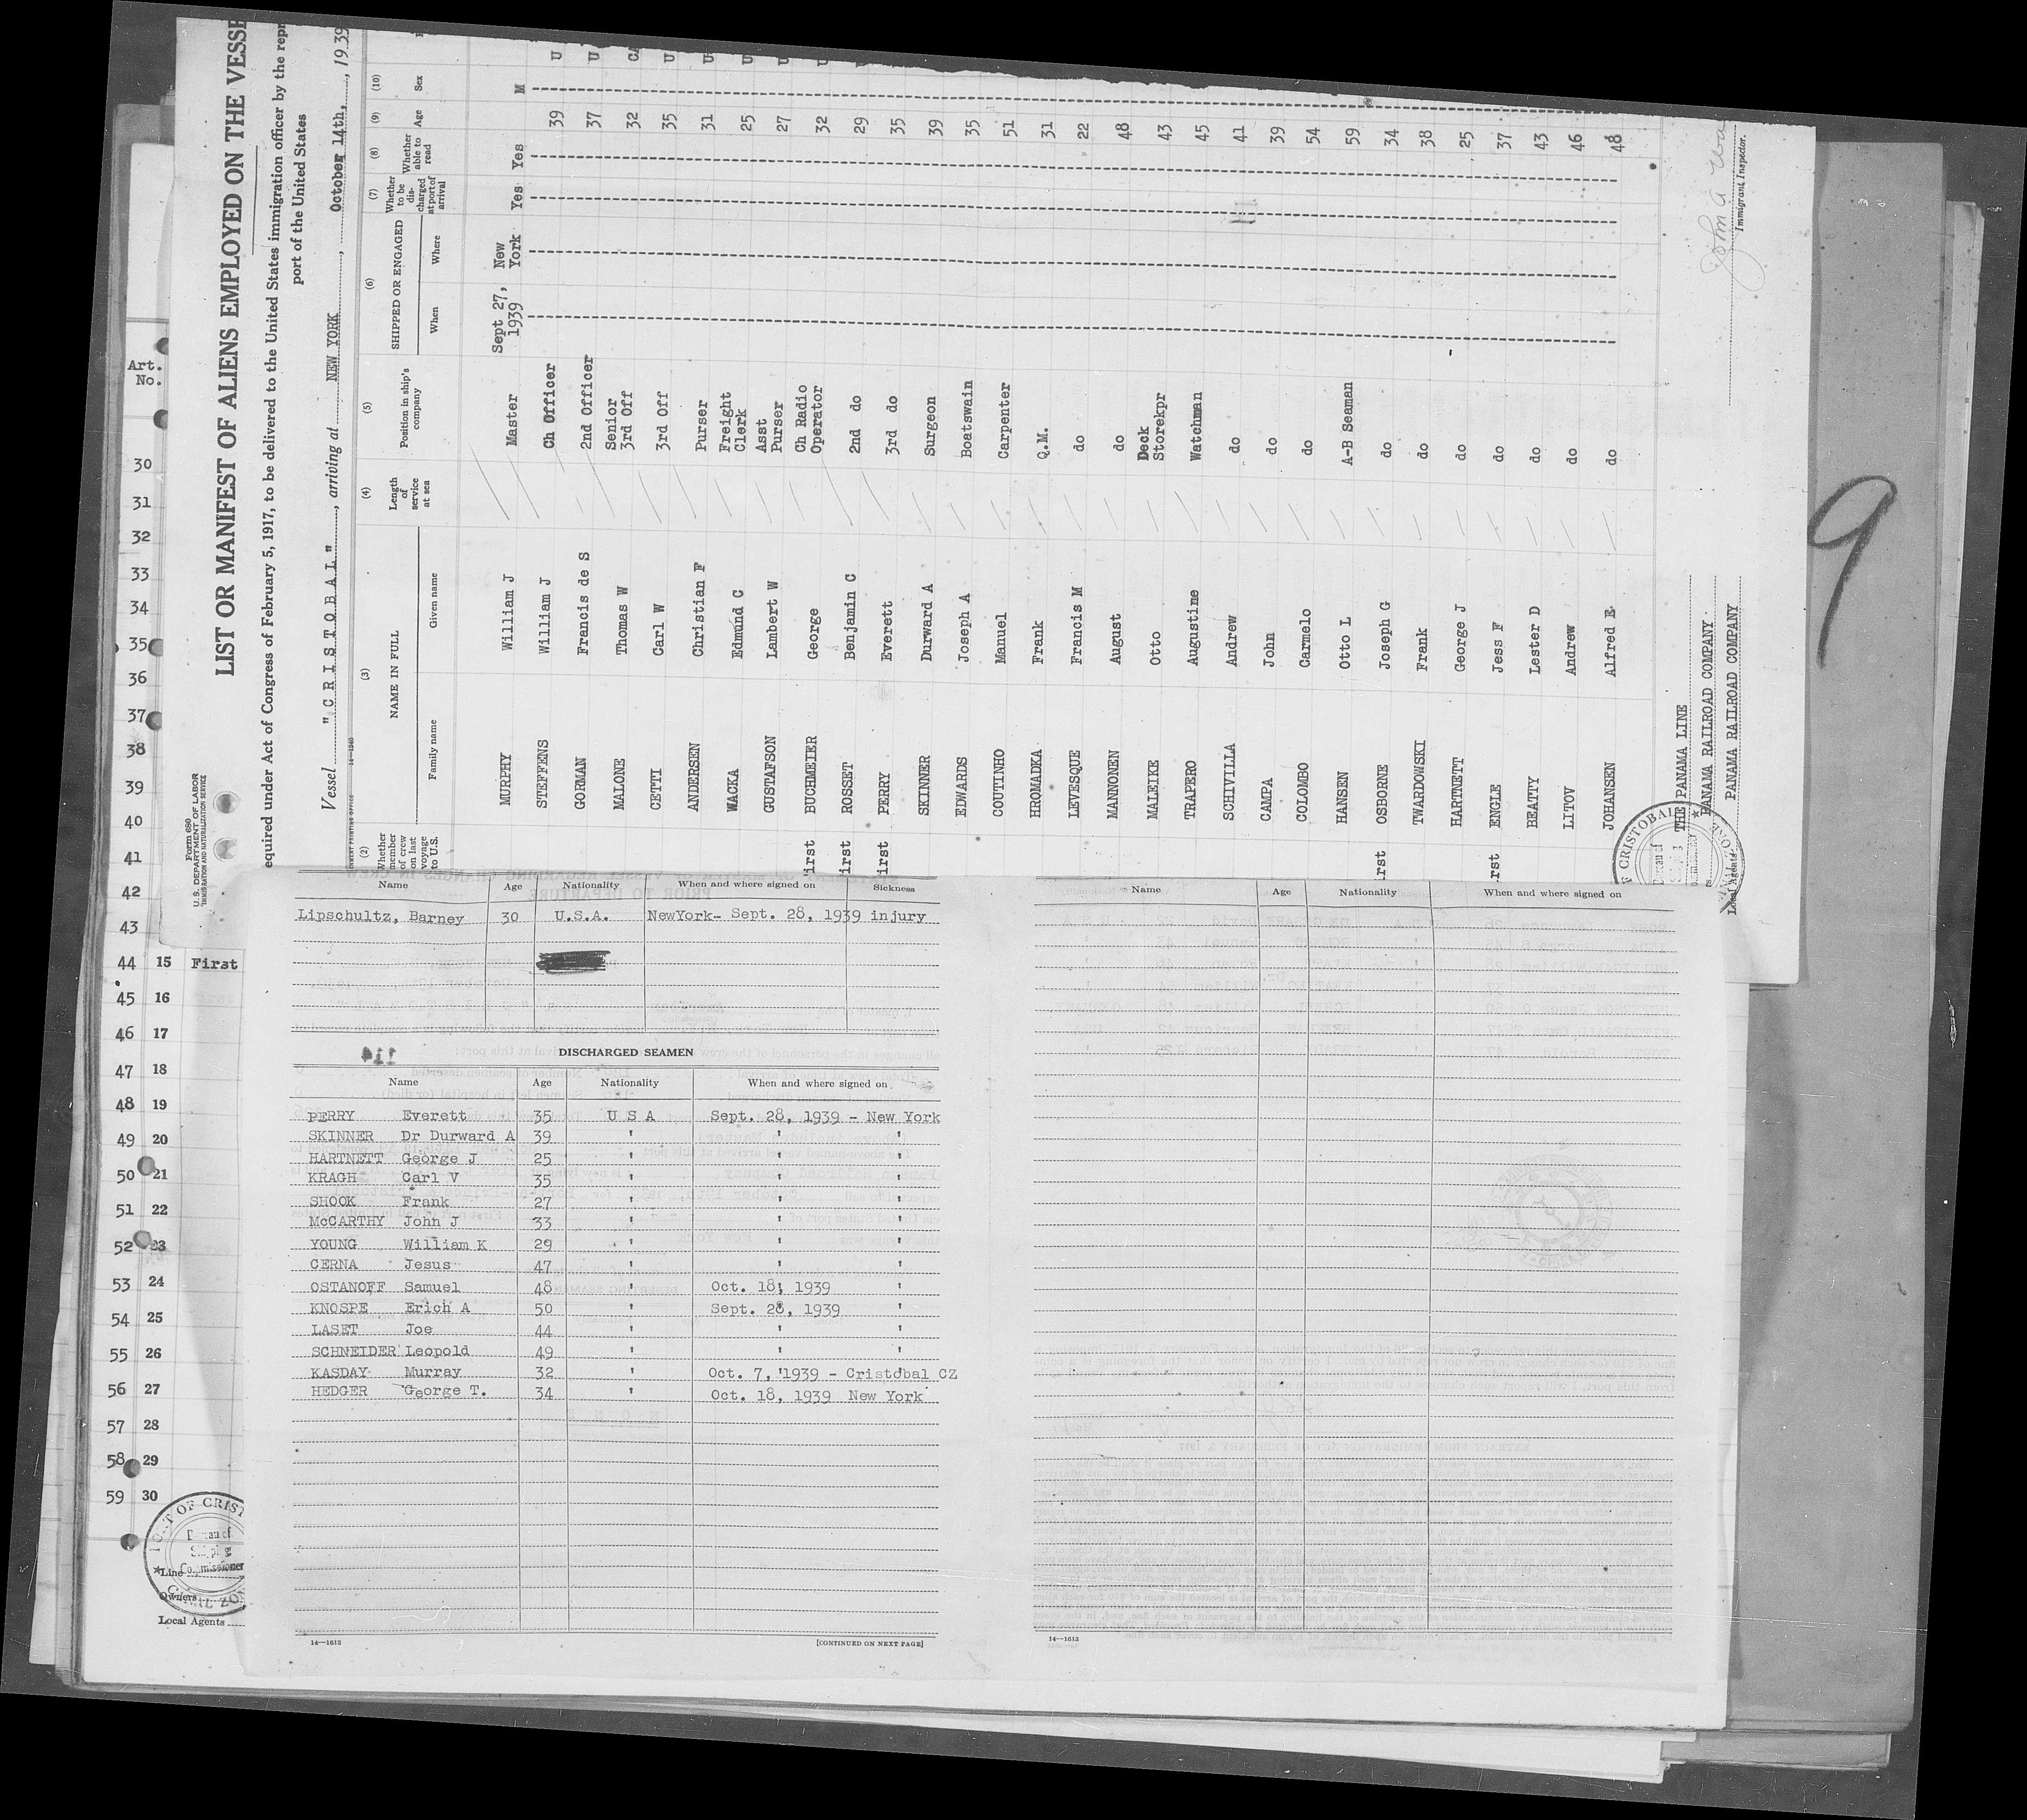 Form 680
U.S. DEPARTMENT OF LABOR
LIST OR MANIFEST OF ALIENS EMPLOYED ON THE VESSE
equired under Act of Congress of February 5, 1917, to be delivered to the United States immigration officer by the repr
port of the United States
Vessel "CRISTOBAL", arriving at NEW YORK, October 14th, 1939
(2) (3) (4) (5) (6) (7) (8) (9) (10)
Whether member of crew on last voyage to U.S. NAME IN FULL Family name Given name Length of service at sea Position in ship's company SHIPPED OR ENGAGED When Where Whether to be discharged at port of arrival Whether able to read Age Sex
MURPHY William J Master Sept 27, 1939 New York Yes Yes M
STEFFENS William J Ch Officer 39 U
GORMAN Francis de S 2nd Officer 37 U
MALONE Thomas W Senior 3rd Off 32 CA
CETTI Carl W 3rd Off 35 U
ANDERSEN Christian F Purser 31 U
WACKA Edmund C Freight Clerk 25 U
GUSTAFSON Lambert W Asst Purser 27 U
irst BUCHMEIER George Ch Radio Operator 32 U
irst ROSSET Benjamin C 2nd do 29
irst PERRY Everett 3rd do 35
SKINNER Durward A Surgeon 39
EDWARDS Joseph A Boatswain 35
COUTINHO Manuel Carpenter 51
HROMADKA Frank Q.M. 31
LEVESQUE Francis M do 22
MANNONEN August do 48
MALEIKE Otto Deck Storekpr 43
TRAPERO Augustine Watchman 45
SCHIVILLA Andrew do 41
CAMPA John do 39
COLOMBO Carmelo do 54
HANSEN Otto L A-B Seaman 59
irst OSBORNE Joseph G do 34
TWARDOWSKI Frank do 38
HARTNETT George J do 25
irst ENGLE Jess F do 37
BEATTY Lester D do 43
LITOV Andrew do 46
JOHANSEN Alfred E do 48
THE PANAMA LINE
PANAMA RAILROAD COMPANY
Local Agents PANAMA RAILROAD COMPANY
Immigrant Inspector.
9
Art. No.
30
31
32
33
34
35
36
37
38
39
40
41
42
43
44 15 First
45 16
46 17
47 18
48 19
49 20
50 21
51 22
52 23
53 24
54 25
55 26
56 27
57 28
58 29
59 30
Line
Owners
Local Agents
Name Age Nationality When and where signed on Sickness
Lipschultz, Barney 30 U.S.A. NewYork- Sept. 28, 1939 injury
DISCHARGED SEAMEN
Name Age Nationality When and where signed on
PERRY Everett 35 U S A Sept. 28, 1939 - New York
SKINNER Dr Durward A 39 ' ' '
HARTNETT George J 25 ' ' '
KRAGH Carl V 35 ' ' '
SHOOK Frank 27 ' ' '
McCARTHY John J 33 ' ' '
YOUNG William K 29 ' ' '
CERNA Jesus 47 ' ' '
OSTANOFF Samuel 48 ' Oct. 18, 1939 '
KNOSPE Erich A 50 ' Sept. 28, 1939 '
LASET Joe 44 ' ' '
SCHNEIDER Leopold 49 ' ' '
KASDAY Murray 32 ' Oct. 7, 1939 - Cristobal CZ
HEDGER George T. 34 ' Oct. 18, 1939 New York
14—1613 [CONTINUED ON NEXT PAGE]
Name Age Nationality When and where signed on
14—1613